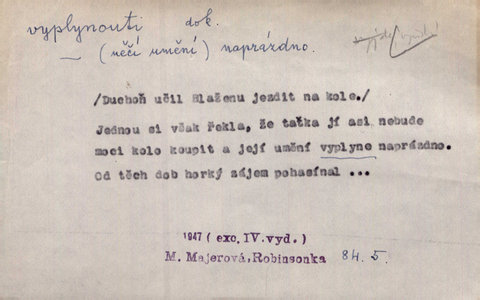 vyplynouti dok.
— (něčí umění) naprázdno.
/Duchoň učil Blaženu jezdit na kole./
Jednou si však řekla, že taťka jí asi nebude
moci kolo koupit a její umění vyplyne naprázdno.
Od těch dob horký zájem pohasínal ...
1947 (exc. IV. vyd.)
M. Majerová, Robinsonka 84. 5.